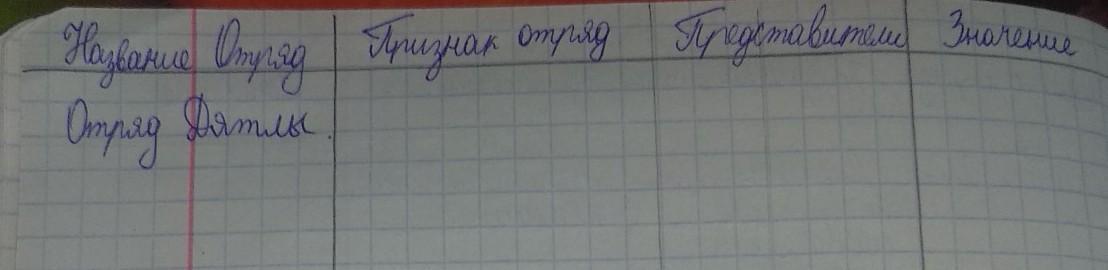 Название Отряд Признак отряд Представители Значение
Отряд Дятлы.